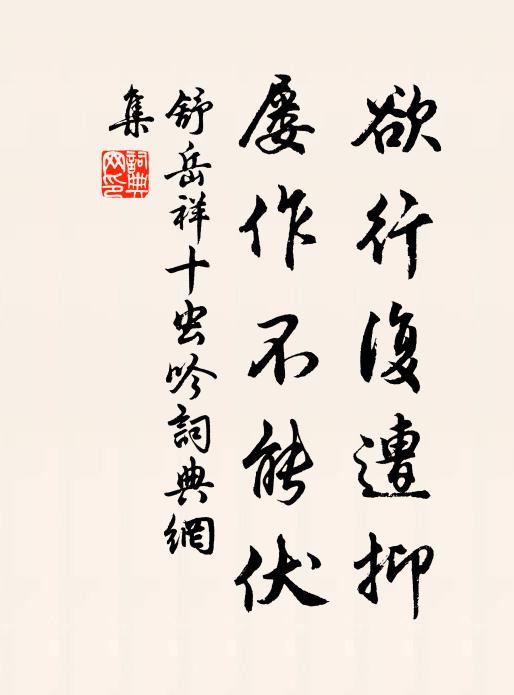 欲行復遭抑
屡作不能伏
舒岳祥十虫吟詞典網
集
詞典網印